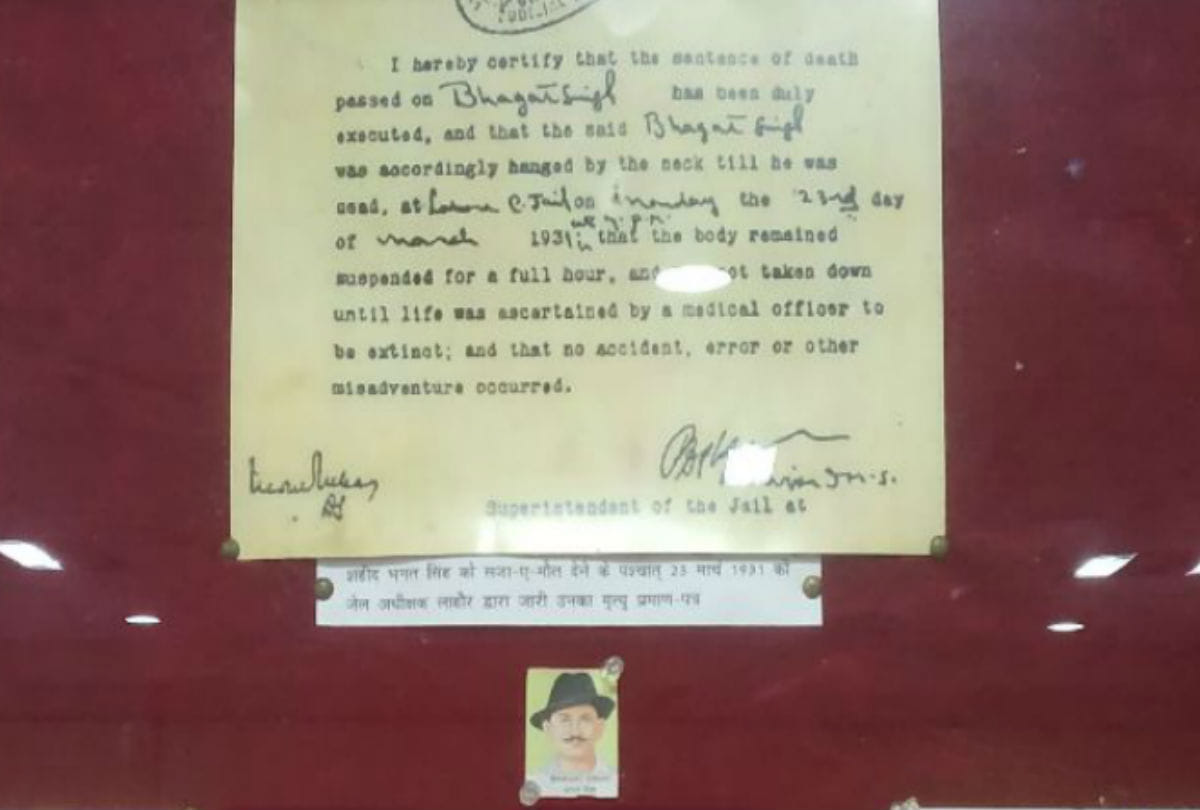 I hereby certify that the sentence of death
passed on Bhagat Singh has been duly
executed, and that the said Bhagat Singh
was accordingly hanged by the neck till he was
dead, at Lahore C. Jail on Monday the 23rd day
of March 1931 at 7 P.M. that the body remained
suspended for a full hour, and not taken down
until life was ascertained by a medical officer to
be extinct; and that no accident, error or other
misadventure occurred.
Superintendent of the Jail at
शहीद भगत सिंह को सजा-ए-मौत देने के पश्चात् 23 मार्च 1931 को
जेल अधीक्षक लाहौर द्वारा जारी उनका मृत्यु प्रमाण-पत्र